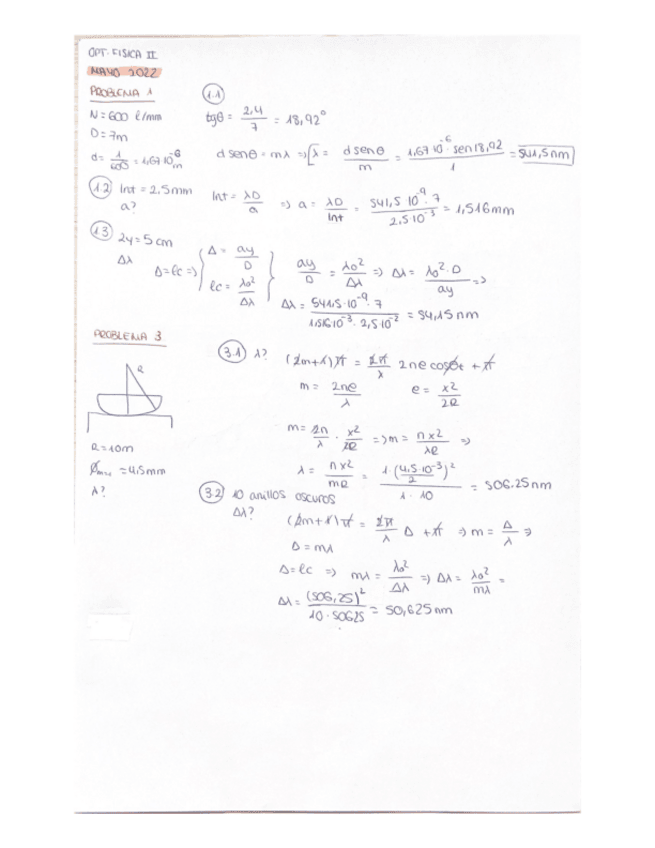 OPT. FISICA II
MAYO 2022
PROBLEMA 1
N = 600 l/mm
D = 7m
d = 1/600 = 1,67·10^-6 m
1.1
tgθ = 2,4/7 = 18,92°
d senθ = mλ => λ = d senθ / m = 1,67·10^-6 · sen 18,92 / 1 = 541,5 nm
1.2 Int = 2,5mm
a?
Int = λD/a => a = λD/Int = 541,5·10^-9 · 7 / 2,5·10^-3 = 1,516mm
1.3 2y = 5 cm
Δλ
Δ = lc => { Δ = ay/D
lc = λo²/Δλ }
ay/D = λo²/Δλ => Δλ = λo²·D/ay =>
Δλ = 541,5·10^-9 · 7 / 1,516·10^-3 · 2,5·10^-2 = 54,15 nm
PROBLEMA 3
R
R = 10m
= 4,5mm
λ?
3.1 λ?
(2m+1)π = 2π/λ 2ne cosθt + π
m = 2ne/λ
e = x²/2R
m = 2n/λ · x²/2R => m = nx²/λR =>
λ = nx²/mR = 1·(4,5·10^-3/2)² / 1·10 = 506.25 nm
3.2 10 anillos oscuros
Δλ?
(2m+1)π = 2π/λ Δ + π => m = Δ/λ =>
Δ = mλ
Δ = lc => mλ = λo²/Δλ => Δλ = λo²/mλ =
Δλ = (506,25)² / 10·506,25 = 50,625 nm